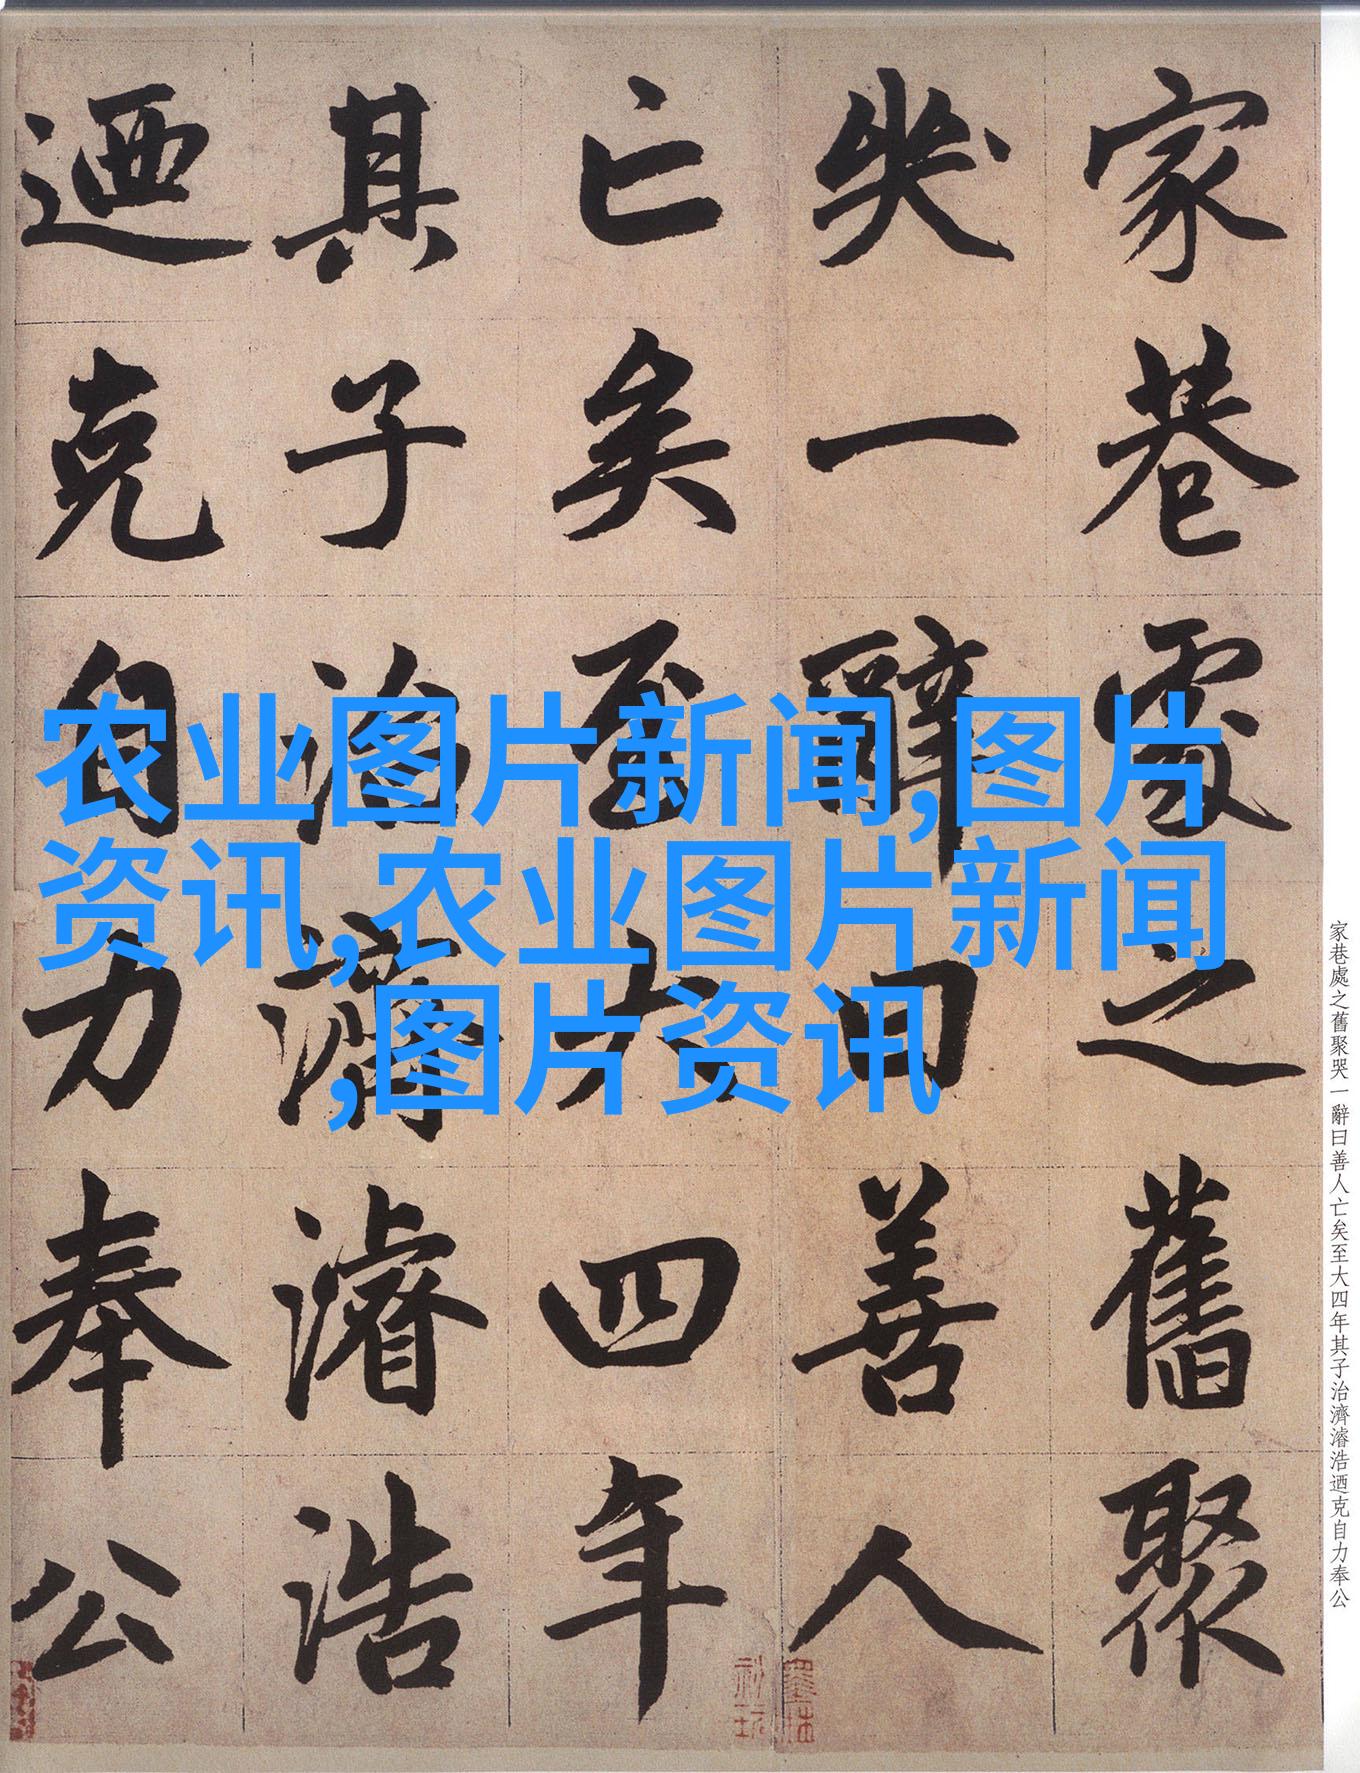 家巷處之舊聚
哭一辭曰善人
亡矣至大四年
其子治濟濬浩
迺克自力奉公
农业图片新闻,图片
资讯,农业图片新闻
,图片资讯
家巷處之舊聚哭一辭曰善人亡矣至大四年其子治濟濬浩迺克自力奉公